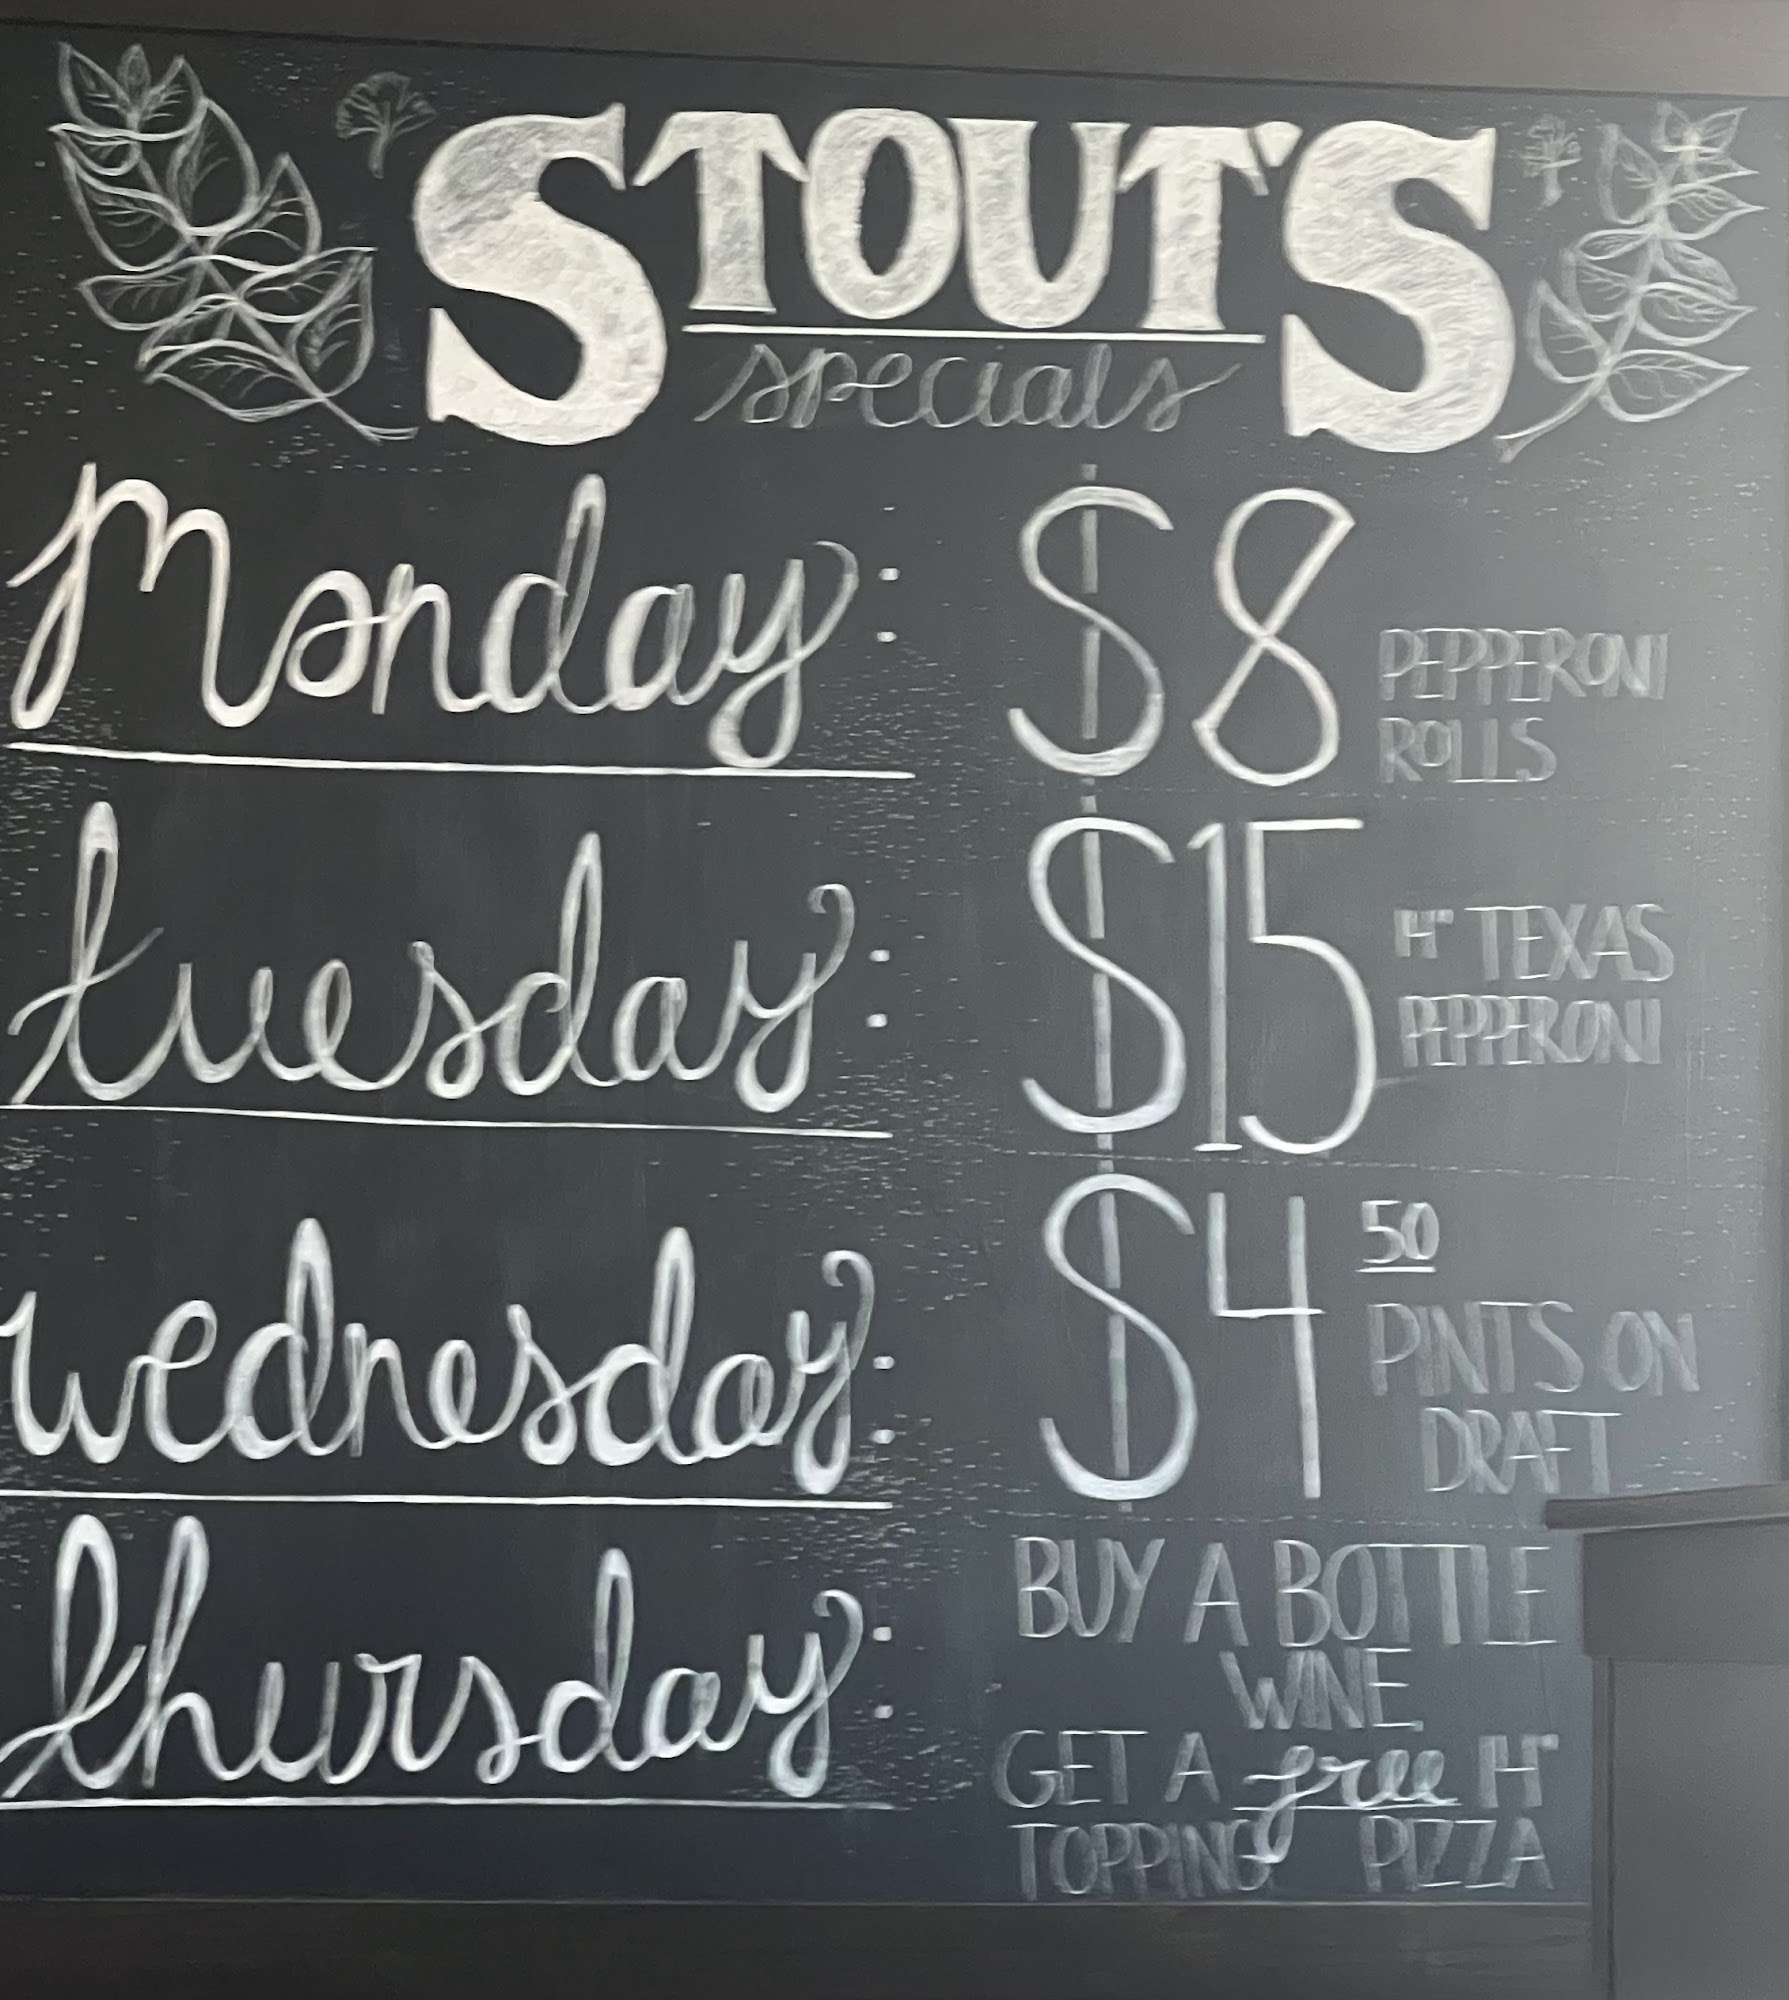 STOUT'S
specials
Monday: $8 PEPPERONI
ROLLS
tuesday: $15 14" TEXAS
PEPPERONI
wednesday: $4 50
PINTS ON
DRAFT
thursday: BUY A BOTTLE
WINE,
GET A free 14"
TOPPING PIZZA